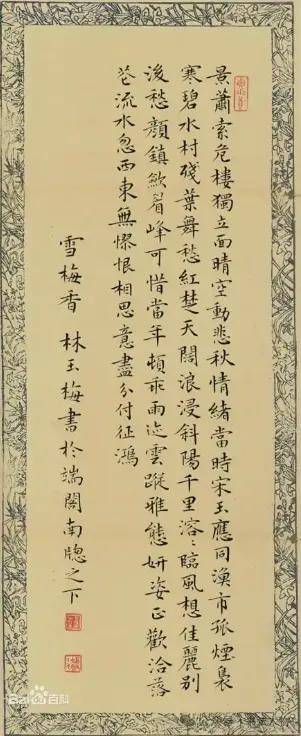 景蕭索危樓獨立面晴空動悲秋情緒當時宋玉應同漁市孤煙裊
寒碧水村殘葉舞愁紅楚天闊浪浸斜陽千里溶〻臨風想佳麗別
後愁顏鎮斂眉峰可惜當年頓乖雨迹雲蹤雅態妍姿正歡洽落
花流水忽西東無憀恨相思意盡分付征鴻
雪梅香 林玉梅書於端閣南窗之下
Bai百科